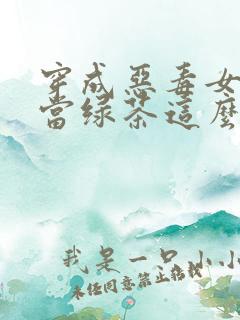 穿成惡毒女
當綠茶這麼
我是一只小小
未经同意禁止搭载